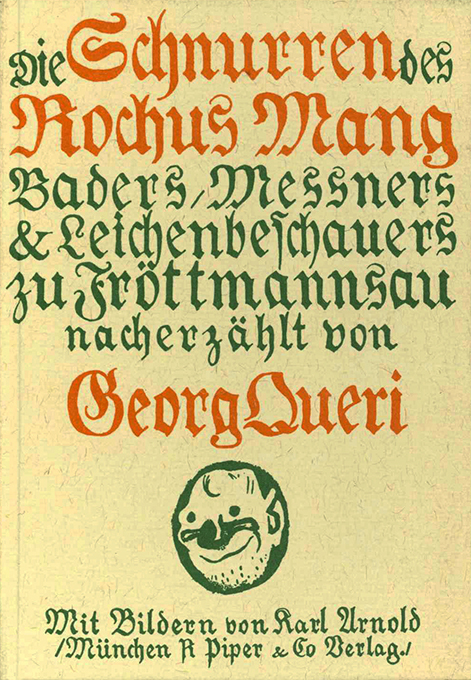 Die Schnurren des
Rochus Mang
Baders, Messners
& Leichenbeſchauers
zu Fröttmannsau
nacherzählt von
Georg Queri
Mit Bildern von Karl Arnold
/München R Piper & Co Verlag./